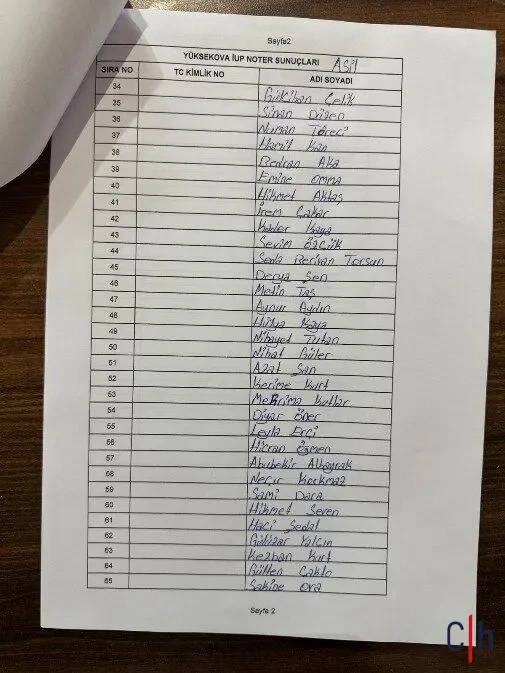 Sayfa2
YÜKSEKOVA İUP NOTER SUNUÇLARI Asil
SIRA NO TC KİMLİK NO ADI SOYADI
34 Gülcihan Çelik
35 Sinan Düzen
36 Numan Töreci
37 Hamit Kan
38 Bedran Aka
39 Emine Omma
40 Hikmet Aktaş
41 İrem Çakar
42 Kaya
43 Sevim Özçük
44 Seda Berivan Torsun
45 Derya Şen
46 Metin Taş
47 Aynur Aydın
48 Hülya Kaya
49 Nihayet Turan
50 Nihat Güler
51 Azat Şan
52 Kerime Kurt
53 Kutlar
54 Diyar Öner
55 Leyla Erçi
56 Hicran Özmen
57 Abubekir Albayrak
58 Neçir Korkmaz
59 Sami Dara
60 Hikmet Seven
61 Haci Sedat
62 Gülizar Yalçın
63 Kezban Kurt
64 Gülten Çaklo
65 Sakine Ora
Sayfa 2
C|h